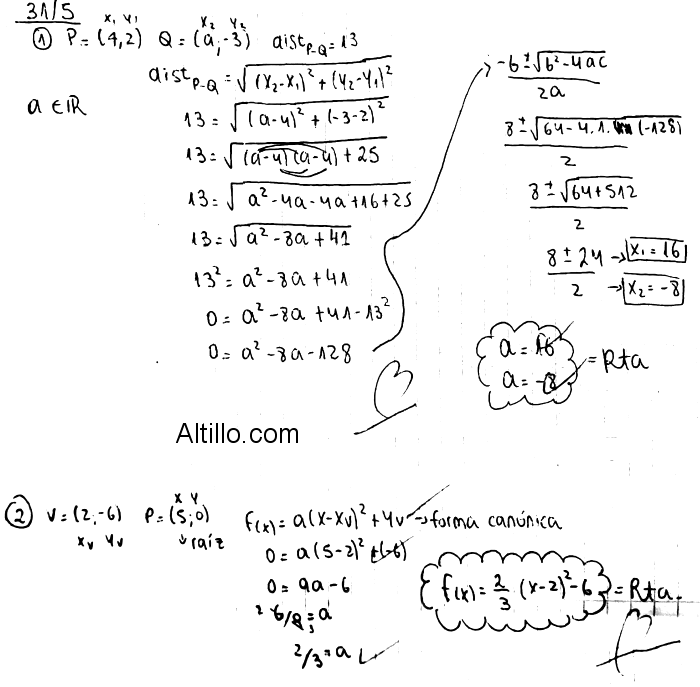 31/5
x₁ y₁ x₂ y₂
① P=(4,2) Q=(a,-3) dist P-Q=13
dist P-Q=√((x₂-x₁)²+(y₂-y₁)²)
a∈ℝ
13=√((a-4)²+(-3-2)²)
13=√((a-4)(a-4)+25)
13=√(a²-4a-4a+16+25)
13=√(a²-8a+41)
13²=a²-8a+41
0=a²-8a+41-13²
0=a²-8a-128
(-b±√(b²-4ac))/2a
(8±√(64-4.1.(-128)))/2
(8±√(64+512))/2
(8±24)/2 → x₁=16
→ x₂=-8
a=16
a=-8
=Rta
Altillo.com
② V=(2,-6) P=(5;0)
xv yv x y ↓raíz
f(x)=a(x-xv)²+yv→forma canónica
0=a(5-2)²+(-6)
0=9a-6
6/9=a
2/3=a
f(x)=2/3 (x-2)²-6 =Rta.